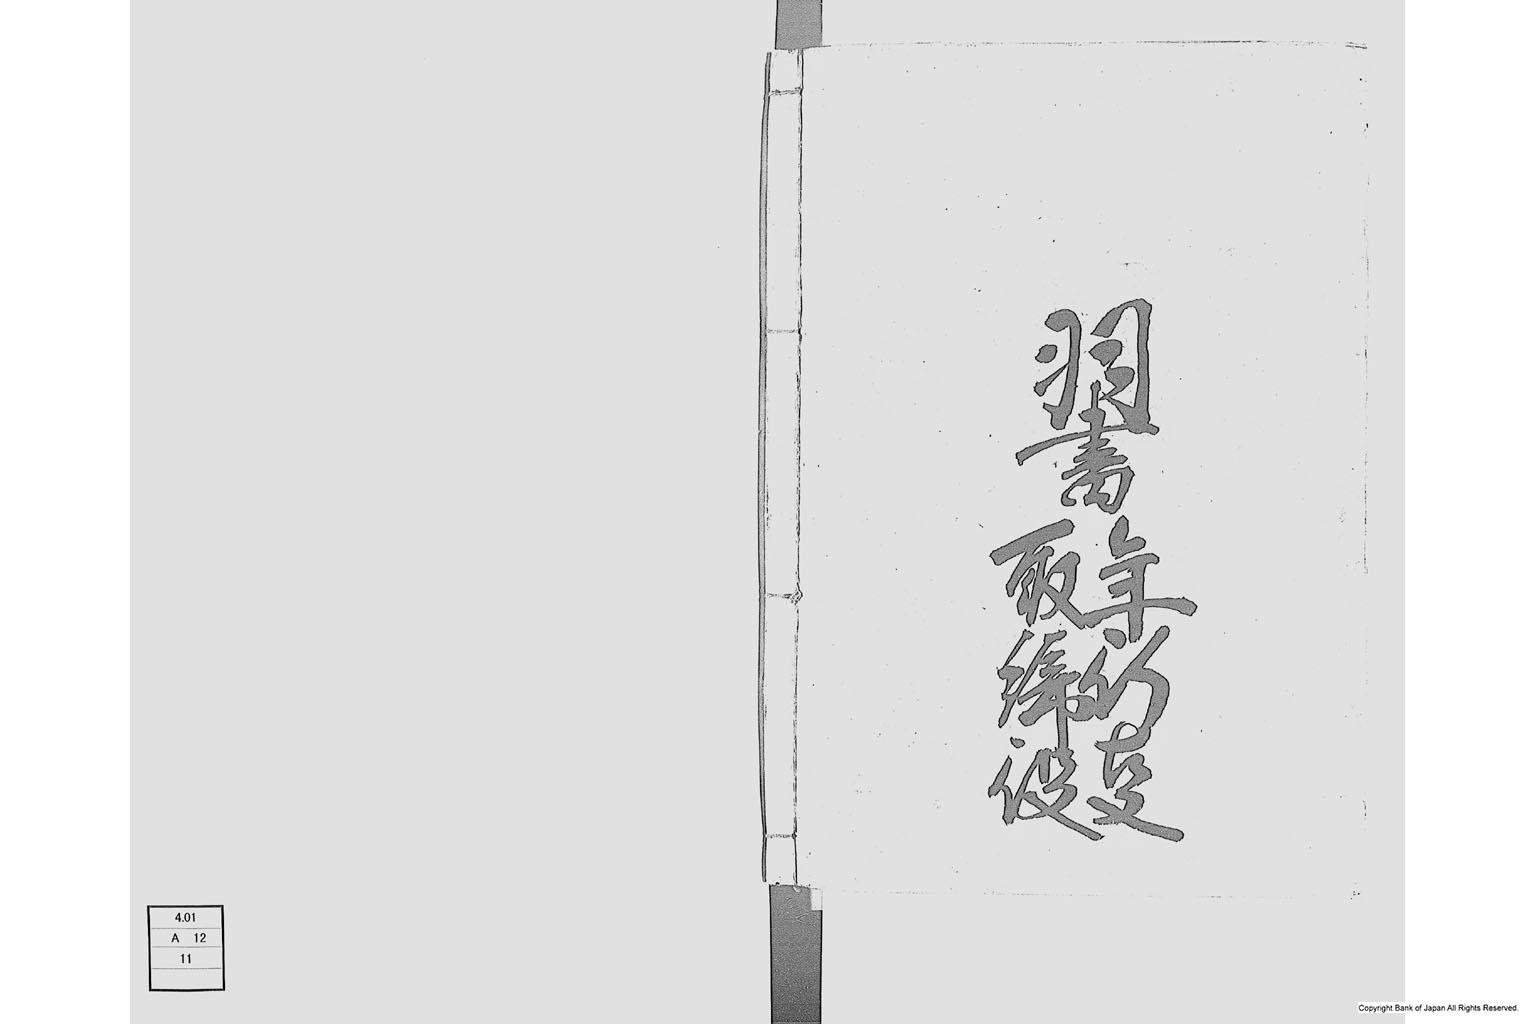 羽書
年行事
取締役
4.01
A 12
11
Copyright Bank of Japan All Rights Reserved.